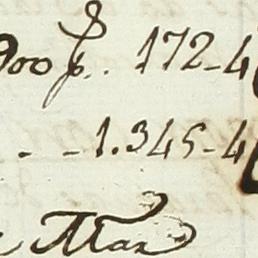 900 p. . 172-4
. - -1.345-4
Mar